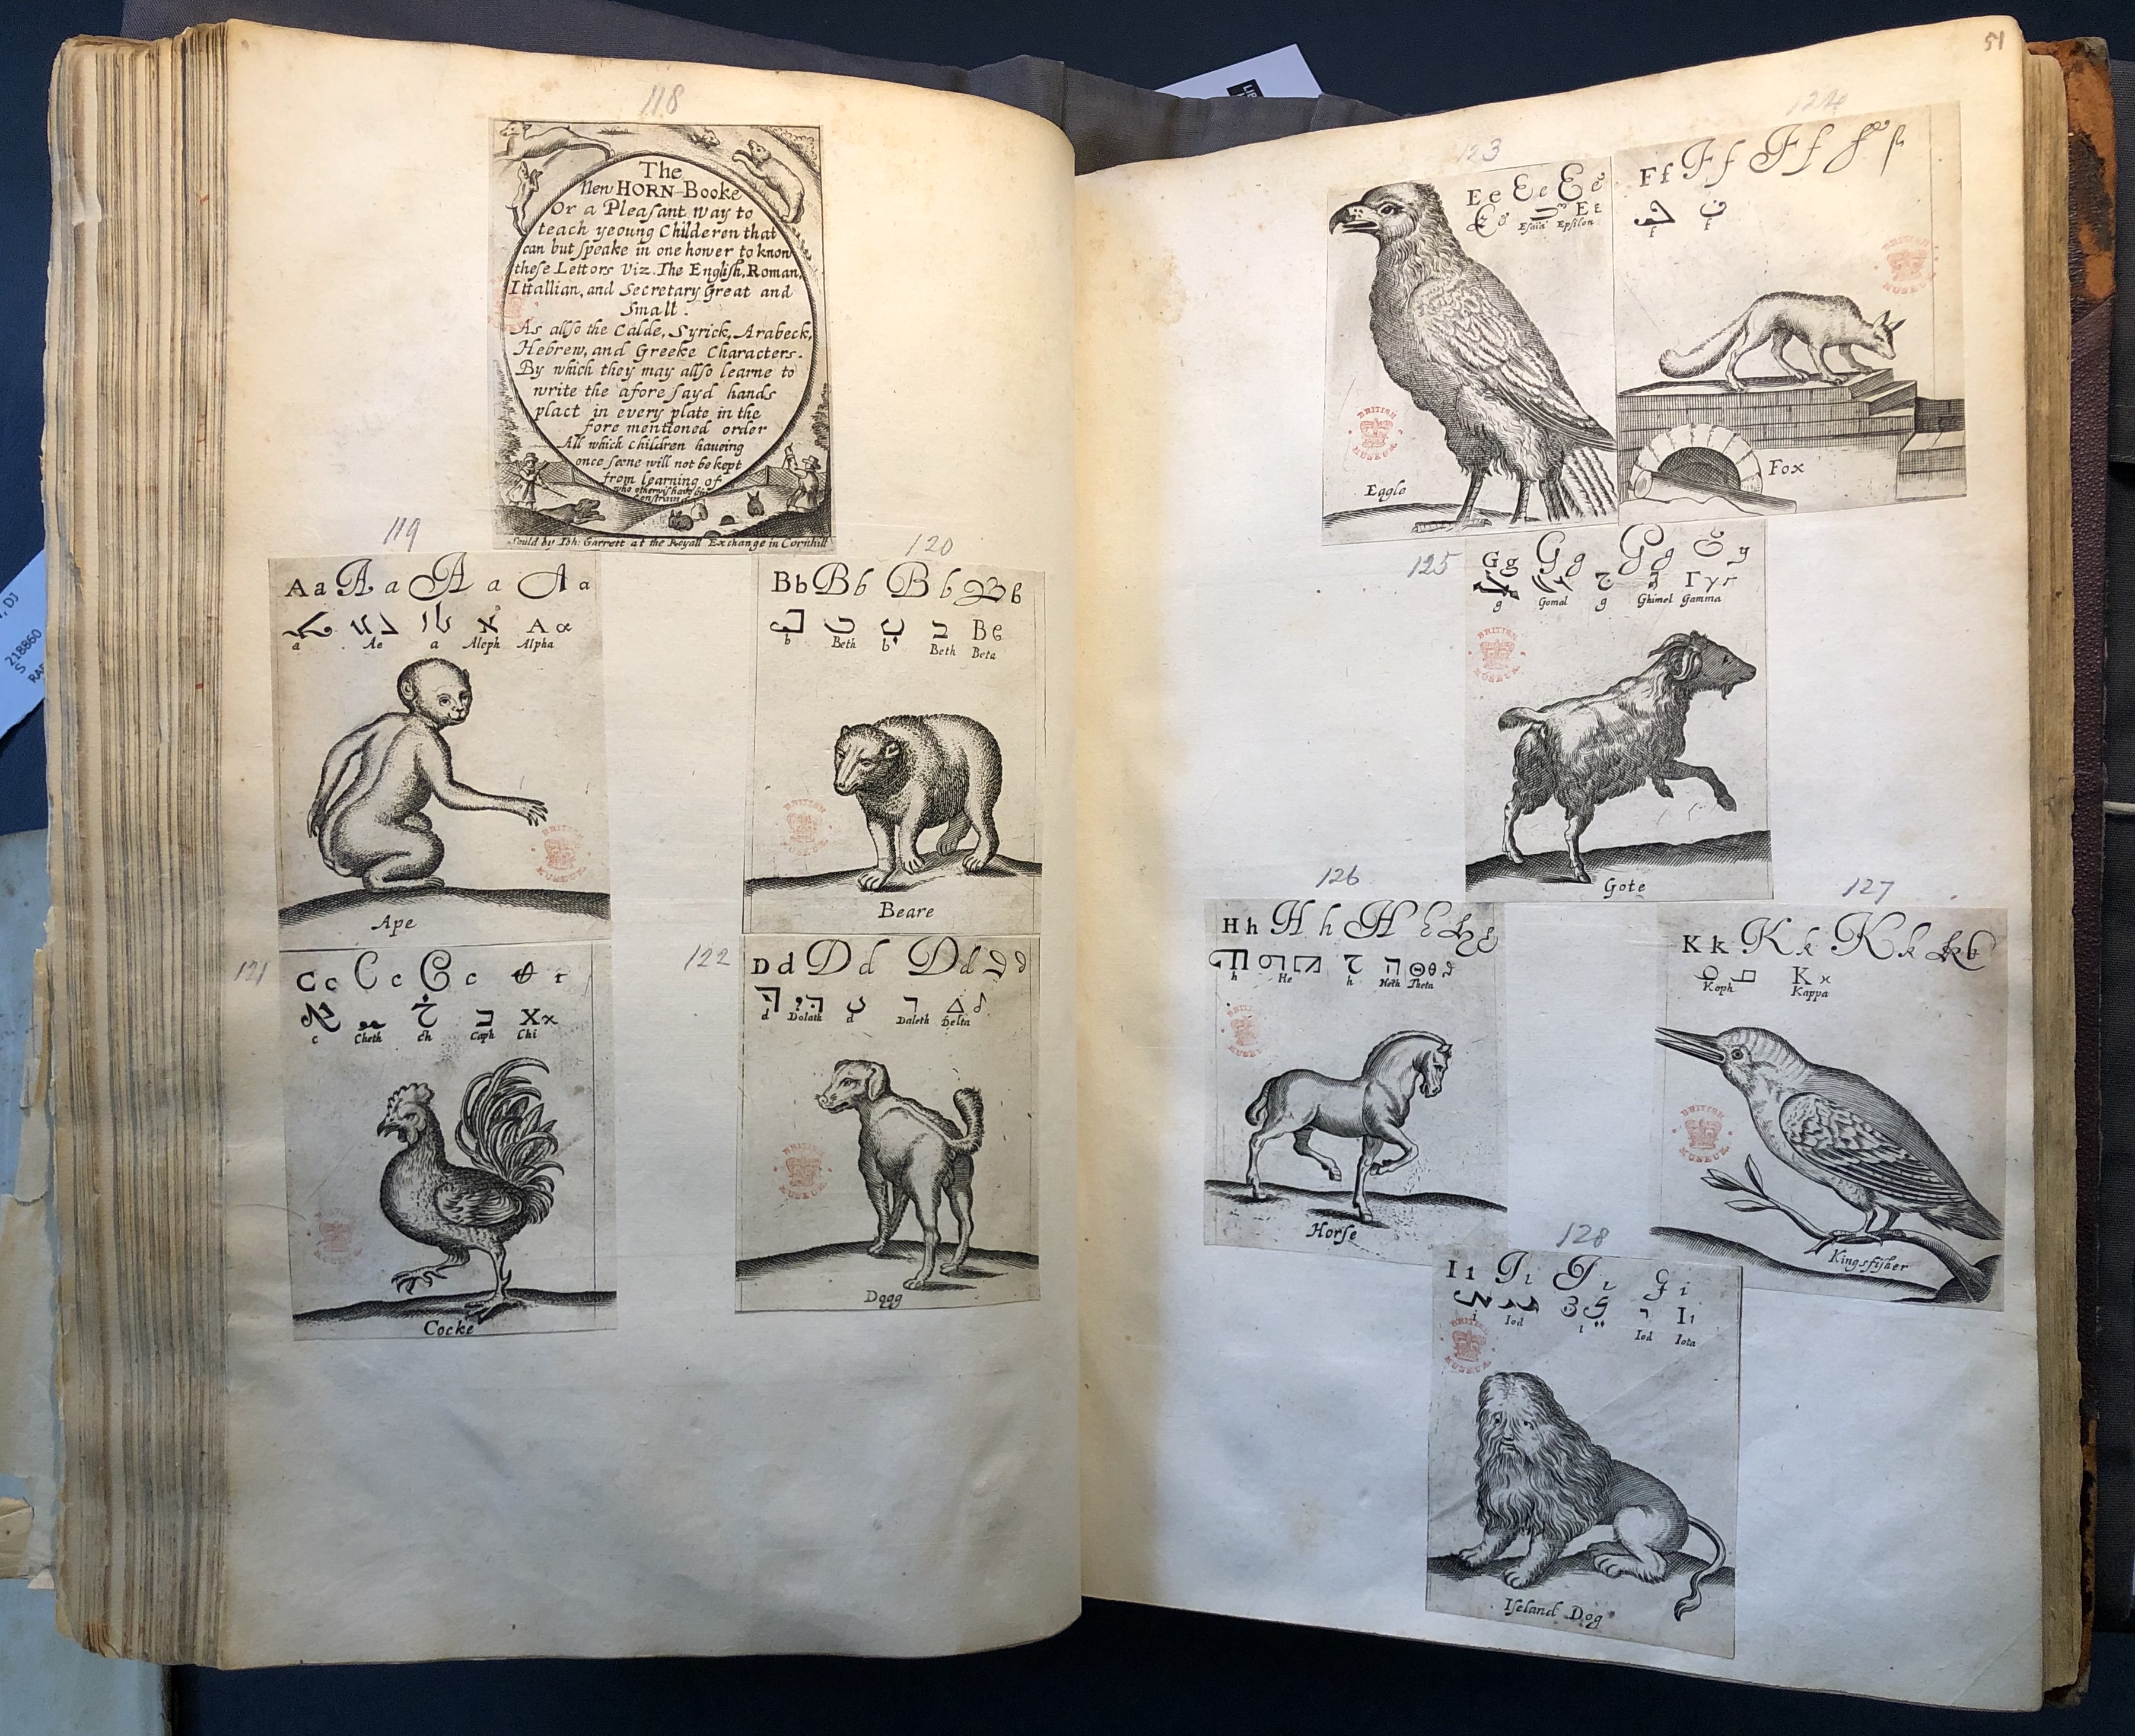 118
The
New HORN-Booke
Or a Pleaſant way to
teach yeoung Childeren that
can but ſpeake in one hower to know
theſe Lettors Viz. The Engliſh, Roman,
Ittallian, and Secretary Great and
Small.
As allſo the Calde, Syrick, Arabeck,
Hebrew, and Greeke Characters.
By which they may allſo learne to
write the afore ſayd hands
plact in every plate in the
fore mentioned order
All which children haueing
once ſeene will not be kept
from learning of
Sould by Ioh: Garrett at the Royall Exchange in Cornhill
119
A a A a A a A a
א Α α
a Ae a Aleph Alpha
BRITISH MUSEUM
Ape
120
B b B b B b B b
ב Β ϐ
b Beth b Beth Beta
BRITISH MUSEUM
Beare
121
C c C c C c
כ Χ χ
c Cheth ch Caph Chi
Cocke
122
D d D d D d
ד Δ
d Dolath d Daleth Delta
BRITISH MUSEUM
Dogg
51
123
E e E e E e
Ε ε
Epſilon
BRITISH MUSEUM
Eagle
124
F f F f F f
f f
BRITISH MUSEUM
Fox
125
G g G g G g g
ג Γ γ
g Gomal g Ghimel Gamma
BRITISH MUSEUM
Gote
126
H h H h H
ח Θ θ
h He h Heth Theta
Horſe
127
K k K k K k
Κ κ
Koph Kappa
BRITISH MUSEUM
Kingsfiſher
128
I ı I ı I ı I i
י Ι ι
i Iod i Iod Iota
BRITISH MUSEUM
Iſeland Dog
218860